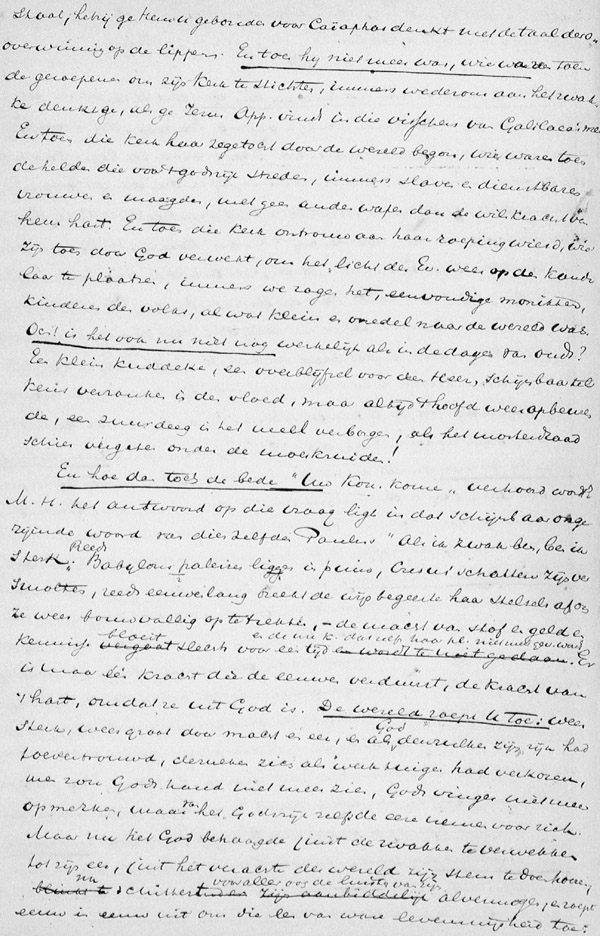 Staat, hetzij ge Hem gebonden voor Caïaphas denkt met de taal der o
overwinning op de lippen. En toen hij niet meer was, wie waren toen
de geroepenen om zijn Kerk te stichten, immers wederom aan het zwak
ke denkt ge, als ge Zenn App. vindt in die visschers van Galilaea's meer
En toen die kerk haar zegetocht door de wereld begon, wie waren toen
de helden die voor 't godsrijk streden, immers slaven en dienstbaren
vrouwen en maagden, met geen ander wapen dan de wilskracht van
hun hart. En toen die kerk ontrouw aan haar roeping wierd, wie
zijn toen door God verwekt, om het licht des Ev. weer op den kande
laar te plaatsen, immers we zagen het, eenvoudige monniken,
kinderen des volks, al wat klein en onedel naar de wereld was.
Och! is het ook nu niet nog werkelijk als in de dagen van ouds?
Een klein kuddeke, een overblijfsel voor den Heer, schijnbaar tel
kens verzonken in den vloed, maar altijd 't hoofd weer opbeuren
de, een zuurdeeg in het meel verborgen, als het mosterdzaad
schier vergeten onder de moeskruiden!
En hoe dan toch de bede "Uw Kon. kome" verhoord wordt?
M. H. het antwoord op die vraag ligt in dat schijnbaar onge
rijmde woord van dienzelfden Paulus "Als ik zwak ben, ben ik
sterk." Reeds Babylons paleizen liggen in puin, Cresus' schatten zijn ver
smolten, reeds eeuwenlang breekt de wijsbegeerte haar stelsels af om
ze weer bouwvallig op te trekken, – de macht van stof en geld en
kennis bloeit slechts voor een tijd en de een k. dat zelf haar pl. niet meer gev. word. Er
is maar één kracht die de eeuwen verduurt, de kracht van
't hart, omdat ze uit God is. De wereld roept U toe: wees
sterk, wees groot door macht en eer, en als God denzulken zijn rijk had
toevertrouwd, dezulken zich als werktuigen had verkoren,
men zou Gods hand niet meer zien, Gods vinger niet meer
opmerken, maar van het Godsrijk zelf de eer nemen voor zich.
Maar nu het God behaagde juist de zwakken te verwekken
tot zijn eer, juist het verachte der wereld zijn stem te doen hooren,
nu schittert voor aller oog de luister van zijn alvermogen, en roept
eeuw in eeuw uit ons die les van ware levenswijsheid toe: